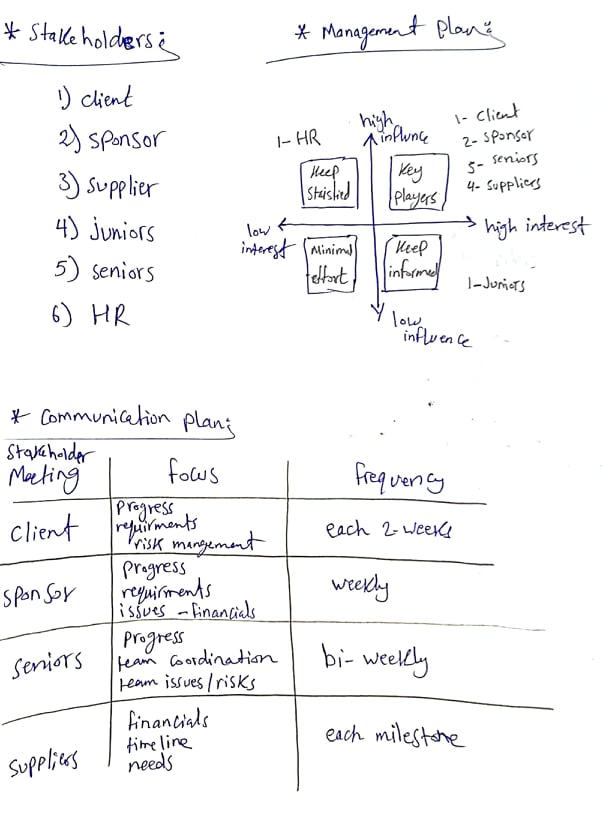 * Stakeholders:
1) client
2) sponsor
3) supplier
4) juniors
5) seniors
6) HR
* Management plan:
high
influnce
1- HR
1- Client
2- sponsor
5- seniors
4- suppliers
Keep
Key
players
low
interest
high interest
Minimal
effort
Keep
informed
1- Juniors
low
influence
* Communication plan:
Stakeholder
Meeting
focus
frequency
client
progress
requirments
risk mangement
each 2-weeks
sponsor
progress
requirments
issues - financials
weekly
seniors
progress
team coordination
team issues/risks
bi-weekly
suppliers
financials
timeline
needs
each milestone